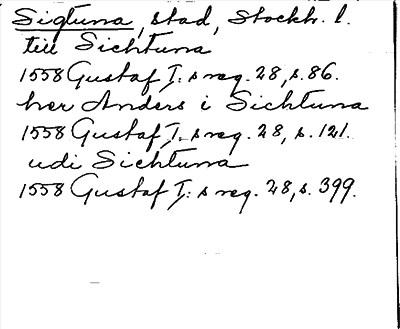 Sigtuna, stad, Stockh. l.
till Sichtuna
1558 Gustaf I: s reg. 28, s. 86.
her Anders i Sichtuna
1558 Gustaf I: s reg. 28, s. 121.
udi Sichtuna
1558 Gustaf I: s reg. 28, s. 399.